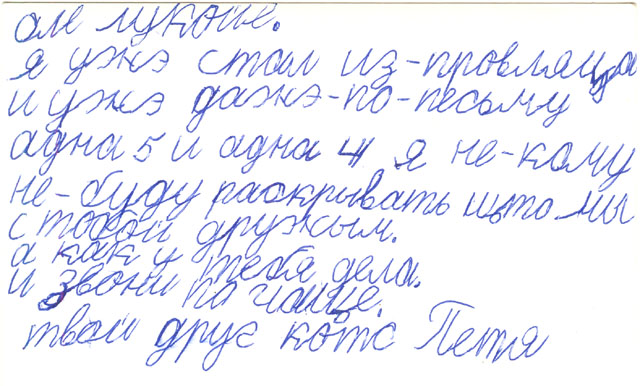 але лукойе.
я ужэ стал из-провляца
и ужэ дажэ-по-песьму
адна 5 и адна 4 я не-кому
не-буду раскрывать што мы
с тобой дружым.
а как у тебя дела.
и звони по чаще.
твой друг котс Петя